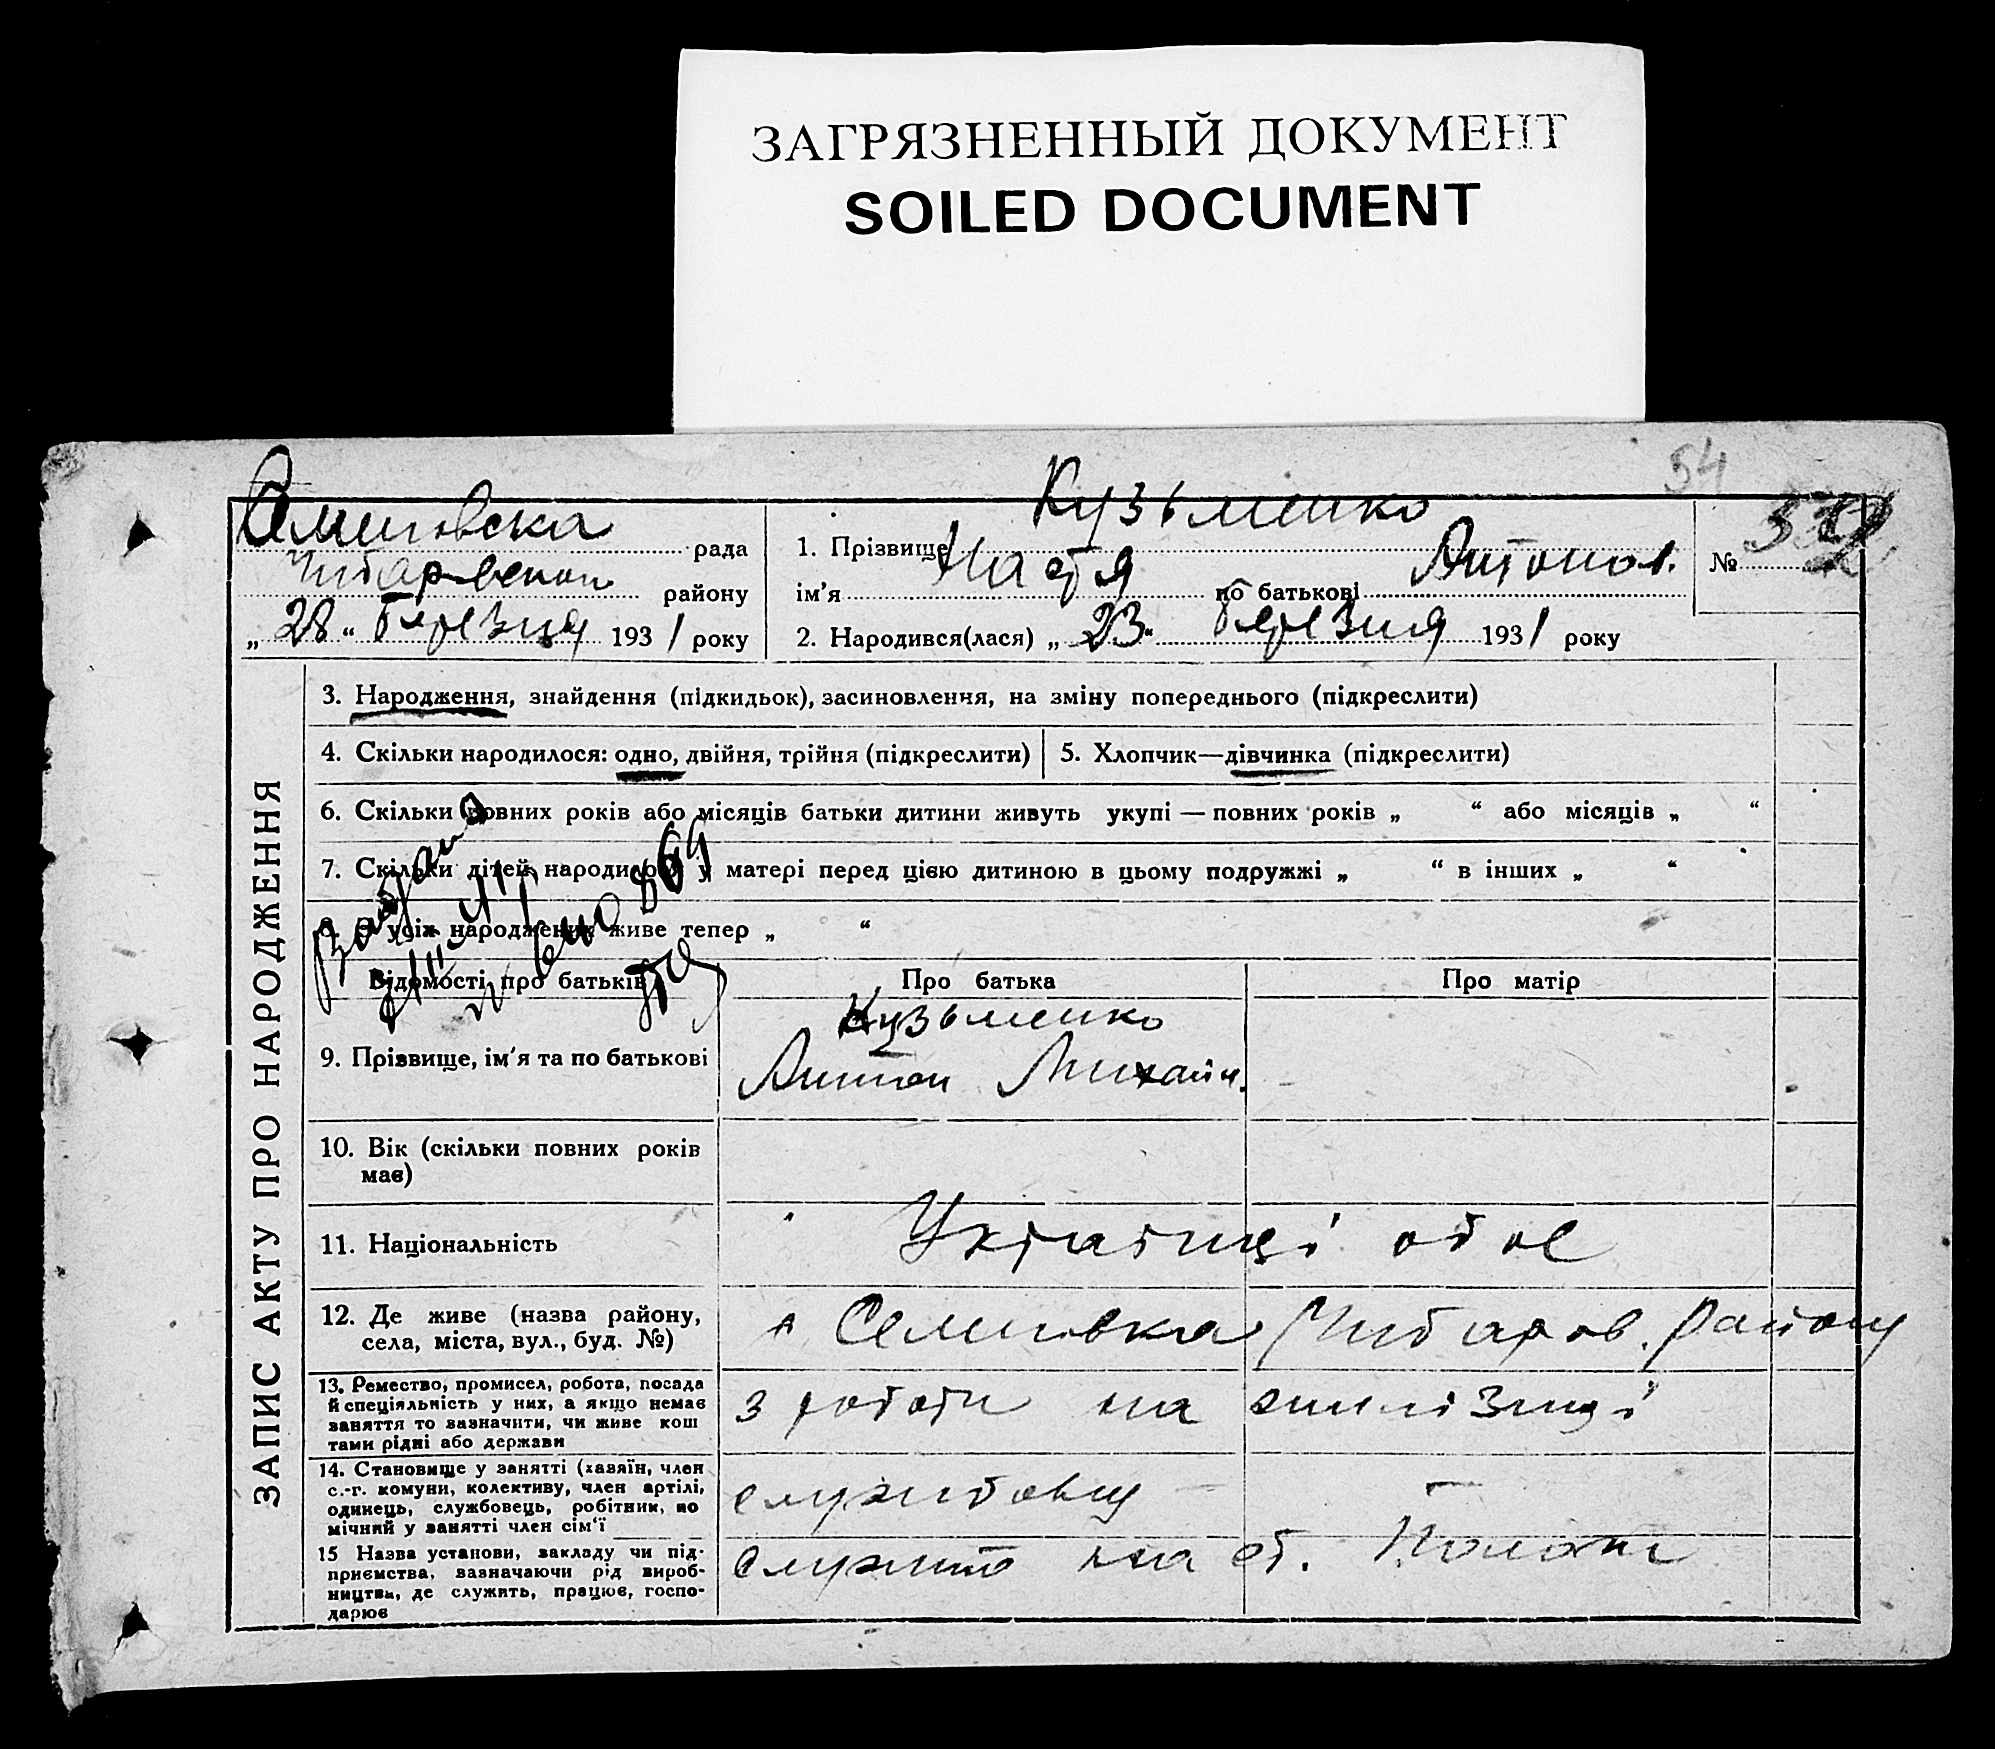 ЗАГРЯЗНЕННЫЙ ДОКУМЕНТ
SOILED DOCUMENT
54
рада
району
„ 28 “ березня 1931 року
Кузьменко
1. Прізвище
Настя Антонов.
ім'я по батькові
2. Народився(лася) „ 23 “ березня 1931 року
№
ЗАПИС АКТУ ПРО НАРОДЖЕННЯ
3. Народження, знайдення (підкидьок), засиновлення, на зміну попереднього (підкреслити)
4. Скільки народилося: одно, двійня, трійня (підкреслити)
5. Хлопчик—дівчинка (підкреслити)
6. Скільки повних років або місяців батьки дитини живуть укупі — повних років „ “ або місяців „ “
7. Скільки дітей народилося у матері перед цією дитиною в цьому подружжі „ “ в інших „ “
8. З усіх народжених живе тепер „ “
Відомості про батьків
Про батька
Про матір
9. Прізвище, ім'я та по батькові
Кузьменко
Антон Михайл.
10. Вік (скільки повних років
має)
11. Національність
Українці обоє
12. Де живе (назва району,
села, міста, вул., буд. №)
с Семенівка Чубаров. Району
13. Ремество, промисел, робота, посада
й спеціяльність у них, а якщо немає
заняття то зазначити, чи живе кош
тами рідні або держави
з роботи на залізниці
14. Становище у занятті (хазяїн, член
с.-г. комуни, колективу, член артілі,
одинець, службовець, робітник, по
мічний у занятті член сім'ї
службовец
15 Назва установи, закладу чи під-
приємства, зазначаючи рід вироб-
ництва, де служить, працює, госпо-
дарює
служить на ст. Пологи